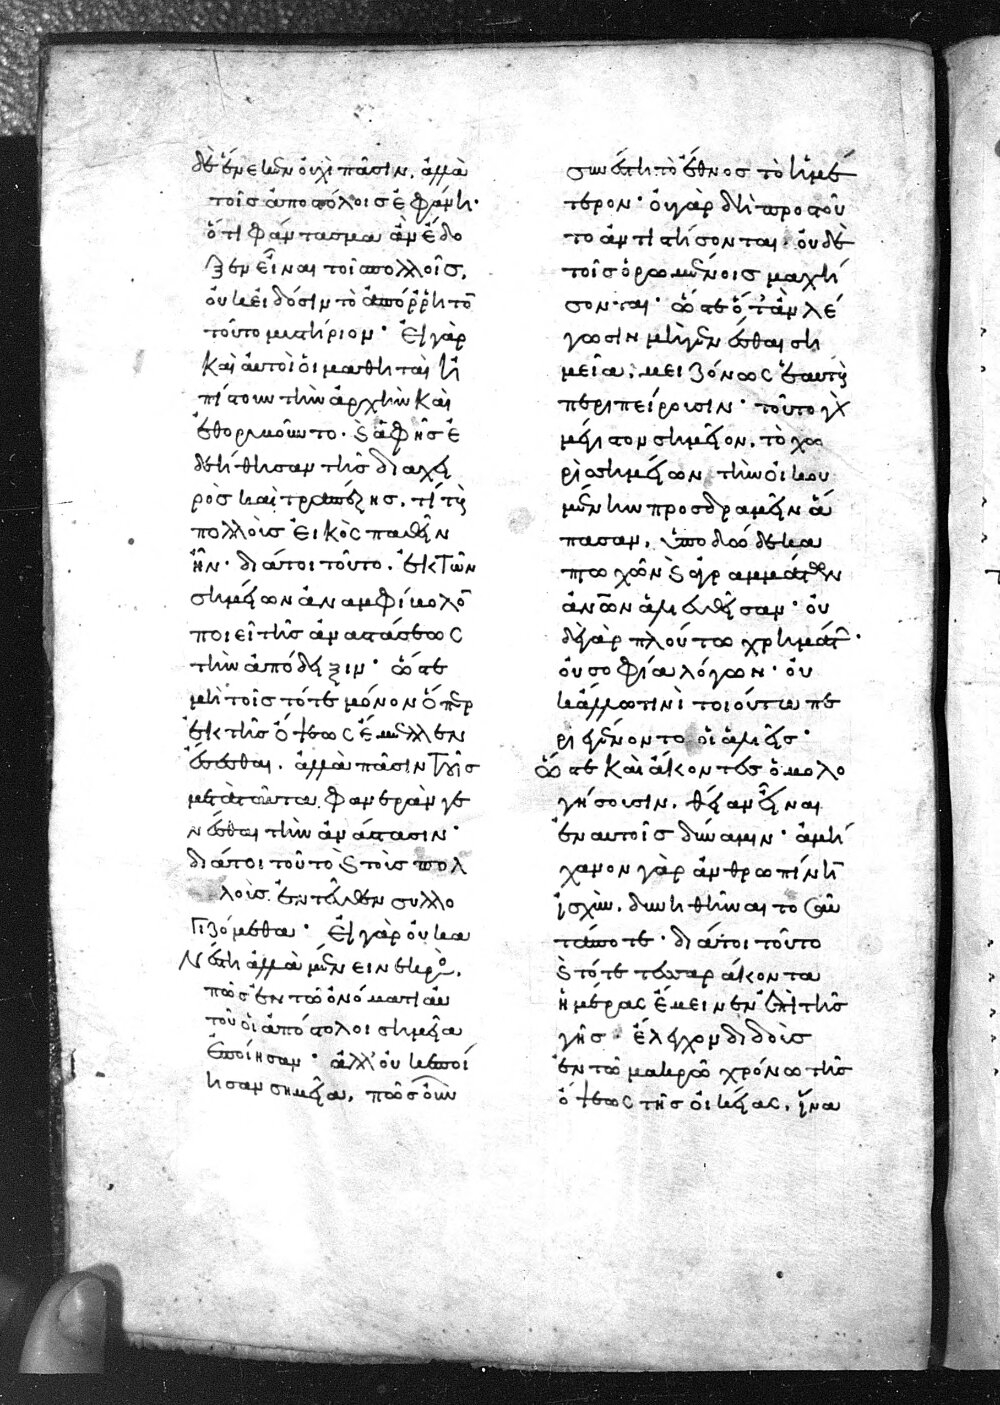 δὲ ἕνεκεν οὐχὶ πᾶσιν, ἀλλὰ
τοῖς ἀποστόλοις ἐφάνη·
ὅτι φάντασμα ἂν ἔδο
ξεν εἶναι τοῖς πολλοῖς,
οὐκ εἰδόσιν τὸ ἀπόρρητον
τοῦτο μυστήριον· εἰ γὰρ
καὶ αὐτοὶ οἱ μαθηταὶ ἠ
πίστουν τὴν ἀρχὴν καὶ
ἐθορυβοῦντο· καὶ ἁφῆς ἐ
δεήθησαν τῆς διὰ χει
ρὸς καὶ τραπέζης, τί τοὺς
πολλοὺς εἰκὸς παθεῖν
ἦν· διά τοι τοῦτο, ἐκ τῶν
σημείων ἀναμφίβολον
ποιεῖ τῆς ἀναστάσεως
τὴν ἀπόδειξιν· ὥστε
μὴ τοῖς τότε μόνον ὅπερ
ἐκ τῆς ὄψεως ἔμελλεν
ἔσεσθαι, ἀλλὰ πᾶσιν τοῖς
μετὰ ταῦτα, φανερὰν γε
νέσθαι τὴν ἀνάστασιν·
διά τοι τοῦτο καὶ τοὺς πολ
λοὺς ἐντεῦθεν συλλο
γιζόμεθα· εἰ γὰρ οὐκ ἀ
νέστη ἀλλὰ μένει νεκρὸς,
πῶς ἐν τῷ ὀνόματι αὐ
τοῦ οἱ ἀπόστολοι σημεῖα
ἐποίησαν· ἀλλ' οὐκ ἐποί
ησαν σημεῖα, πῶς οὖν
συνέστη τὸ ἔθνος τὸ ἡμέ
τερον· οὐ γὰρ δὴ πρὸς τοῦ
το ἀντιστήσονται· οὐδὲ
τοῖς ὁρωμένοις μαχή
σονται· ὥστε ὅταν λέ
γωσιν μὴ γενέσθαι ση
μεῖα, μειζόνως ἑαυτοὺς
περιπείρουσιν· τοῦτο γὰρ
μέγιστον σημεῖον, τὸ χω
ρὶς σημείων τὴν οἰκου
μένην προσδραμεῖν ἅ
πασαν, ὑπὸ δώδεκα
πτωχῶν καὶ ἀγραμμάτων
ἀνθρώπων ἁλιευθεῖσαν· οὐ
δὲ γὰρ πλούτω χρημάτων·
οὐ σοφία λόγων· οὐ
κ ἄλλω τινὶ τοιούτω πε
ριεγένοντο οἱ ἁλιεῖς·
ὥστε καὶ ἄκοντες ὁμολο
γήσουσιν, θείαν εἶναι
ἐν αὐτοῖς δύναμιν· ἀμή
χανον γὰρ ἀνθρωπίνην
ἰσχὺν, δυνηθῆναι τοσαῦ
τά ποτε· διά τοι τοῦτο
καὶ τότε τεσσαράκοντα
ἡμέρας ἔμεινεν ἐπὶ τῆς
γῆς· ἔλεγχον διδοὺς
ἐν τῷ μακρῷ χρόνω τῆς
ὄψεως τῆς οἰκείας, ἵνα